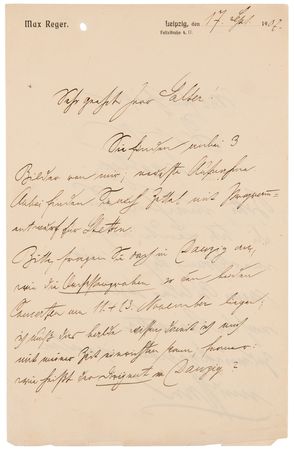 Max Reger.
Leipzig, den 17. Sept. 1907.
Felixstraße 4. II.
Sehr geehrter Herr
Sie finden anbei 3
Bilder von mir; neueste Aufnahme
Anbei finden Sie auch Zettel mit Programm-
entwurf für Stettin.
Bitte fragen Sie doch in Danzig an,
wie die von beiden
Concerten am 11. & 13. November liegen;
ich muß das bald wissen, damit ich mich
mit meiner Zeit einrichten kann, ferner:
wie heißt der Dirigent in Danzig?